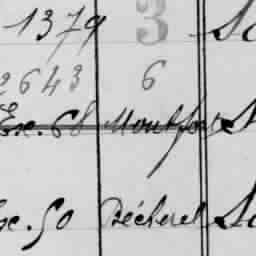 1379 3 So
2643 6
Ex. 68 Montfort S
Ex. 50 Bécherel So